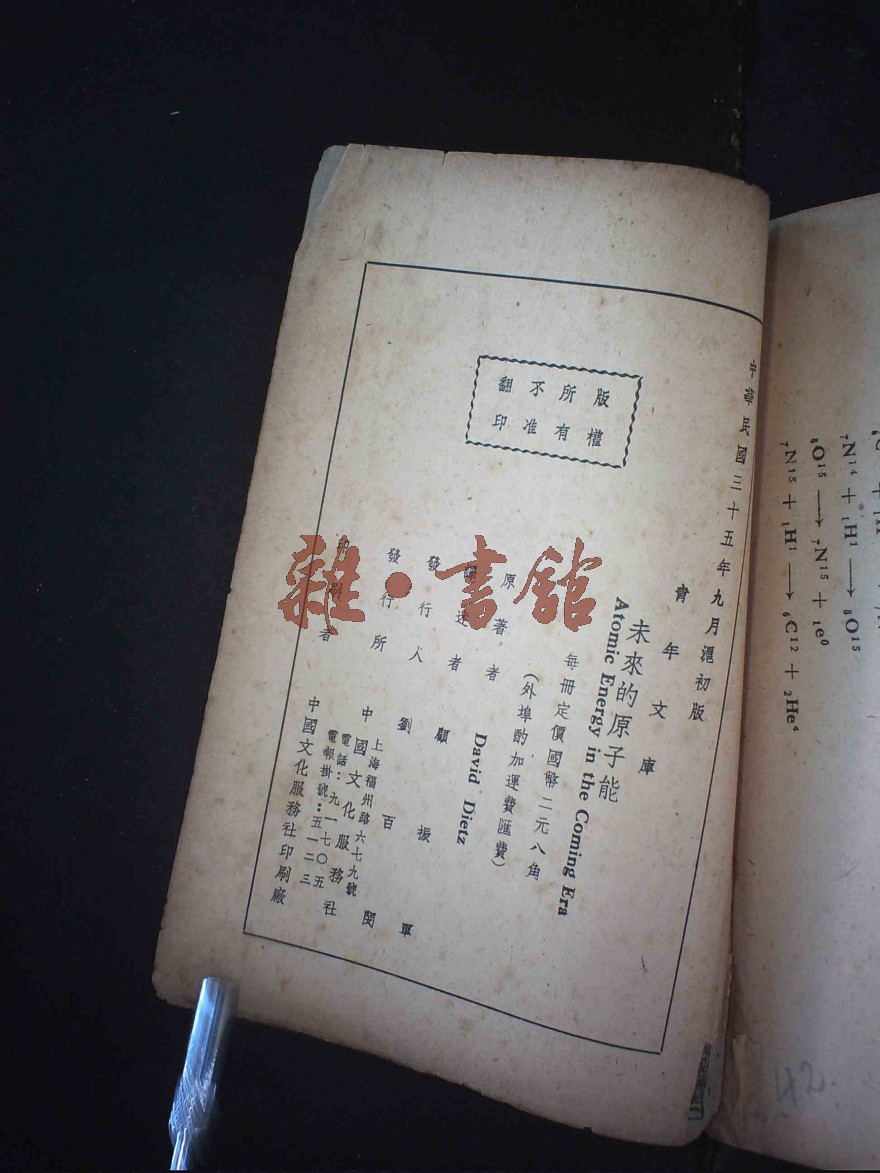 中華民國三十五年九月滬初版
青年文庫
未來的原子能
Atomic Energy in the Coming Era
每冊定價國幣二元八角
(外埠酌加運費匯費)
原著者 David Dietz
譯述者 顧振軍
發行人 劉百閔
發行所 中國文化服務社
上海福州路六七九號
電話:九一七〇五
電報掛號:五一二三
印刷者 中國文化服務社印刷廠
版權
所有
不准
翻印
雜·書館
₇N¹⁴ + ₁H¹ ⟶ ₈O¹⁵
₈O¹⁵ ⟶ ₇N¹⁵ + ₁e⁰
₇N¹⁵ + ₁H¹ ⟶ ₆C¹² + ₂He⁴
42.